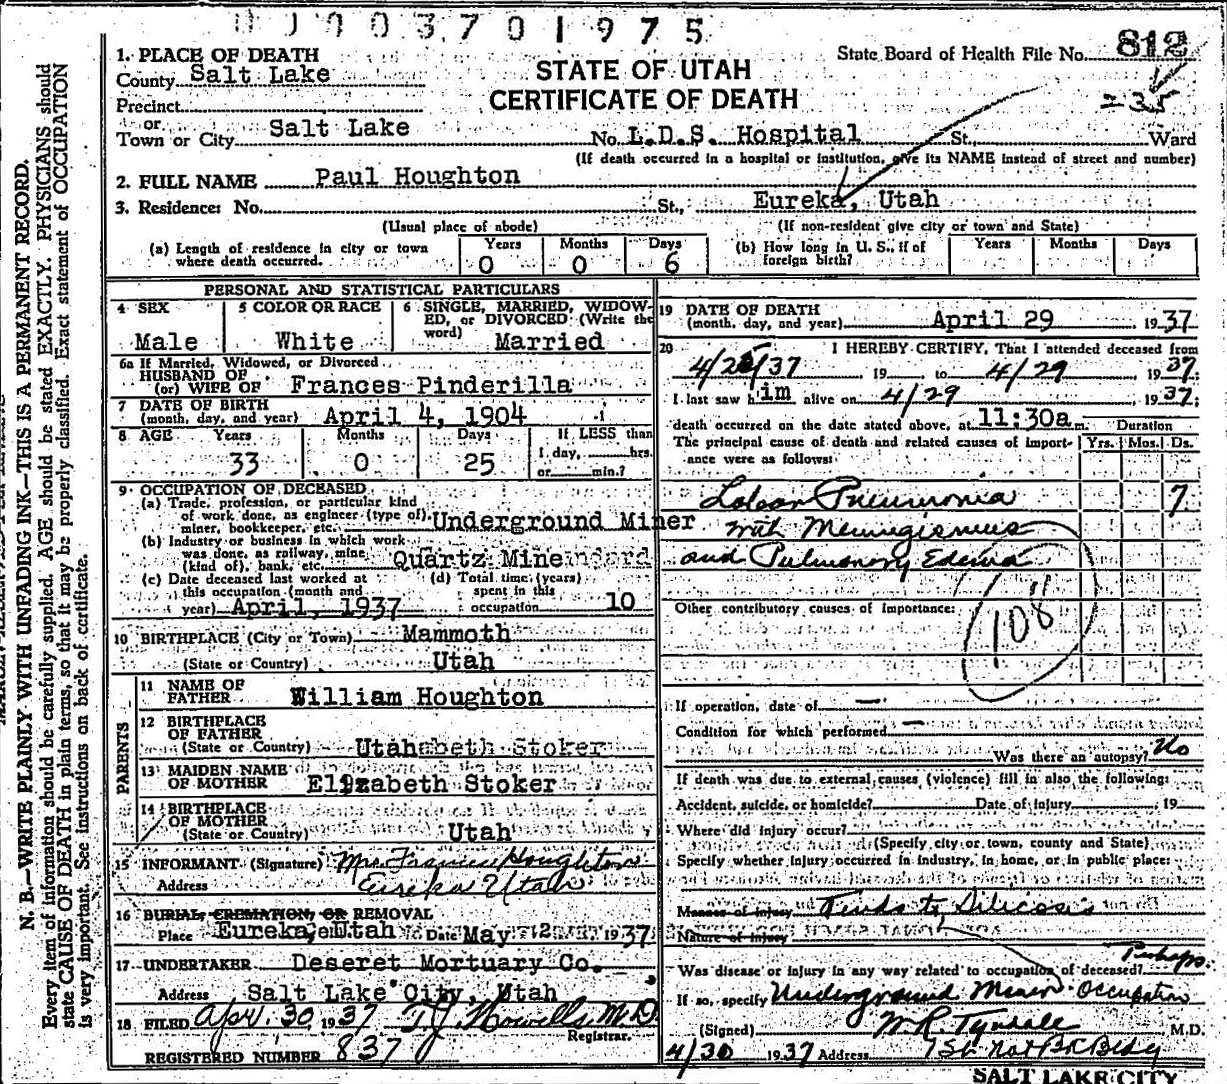 0003701975
State Board of Health File No. 812
235
STATE OF UTAH
CERTIFICATE OF DEATH
1. PLACE OF DEATH
County Salt Lake
Precinct
or
Town or City Salt Lake No. L.D.S. Hospital St., Ward
(If death occurred in a hospital or institution, give its NAME instead of street and number)
2. FULL NAME Paul Houghton
3. Residence: No. St., Eureka, Utah
(Usual place of abode) (If non-resident give city or town and State)
(a) Length of residence in city or town where death occurred. Years 0 Months 0 Days 6
(b) How long in U. S., if of foreign birth? Years Months Days
PERSONAL AND STATISTICAL PARTICULARS
4 SEX Male
5 COLOR OR RACE White
6 SINGLE, MARRIED, WIDOWED, or DIVORCED (Write the word) Married
6a If Married, Widowed, or Divorced
HUSBAND OF
(or) WIFE OF Frances Pinderilla
7 DATE OF BIRTH
(month, day, and year) April 4, 1904
8 AGE Years 33 Months 0 Days 25 If LESS than 1 day, hrs. or min.?
9 OCCUPATION OF DECEASED
(a) Trade, profession, or particular kind of work done, as engineer (type of) miner, bookkeeper, etc. Underground Miner
(b) Industry or business in which work was done, as railway, mine (kind of), bank, etc. Quartz Mine
(c) Date deceased last worked at this occupation (month and year) April, 1937
(d) Total time (years) spent in this occupation 10
10 BIRTHPLACE (City or Town) Mammoth
(State or Country) Utah
PARENTS
11 NAME OF FATHER William Houghton
12 BIRTHPLACE OF FATHER
(State or Country) Utah
13 MAIDEN NAME OF MOTHER Elizabeth Stoker
14 BIRTHPLACE OF MOTHER
(State or Country) Utah
15 INFORMANT (Signature) Mrs. Frances Houghton
Address Eureka Utah
16 BURIAL, CREMATION, OR REMOVAL
Place Eureka, Utah Date May 2 1937
17 UNDERTAKER Deseret Mortuary Co.
Address Salt Lake City, Utah
18 FILED Apr. 30, 1937 T.J. Howells M.D.
Registrar.
REGISTERED NUMBER 837
19 DATE OF DEATH
(month, day, and year) April 29, 1937
20 I HEREBY CERTIFY, That I attended deceased from
37 19 to 4/29, 1937;
I last saw him alive on 4/29 1937;
death occurred on the date stated above, at 11:30a m. Duration
The principal cause of death and related causes of importance were as follows: Yrs. Mos. Ds.
Lobar Pneumonia 7
with Meningismus
and Pulmonary Edema
108
Other contributory causes of importance:
If operation, date of —
Condition for which performed —
Was there an autopsy? No
If death was due to external causes (violence) fill in also the following:
Accident, suicide, or homicide? Date of injury 19
Where did injury occur?
(Specify city or town, county and State)
Specify whether injury occurred in industry, in home, or in public place:
Manner of injury Tends to Silicosis
Nature of injury
Was disease or injury in any way related to occupation of deceased? Perhaps.
If so, specify Underground Miner Occupation
(Signed) W.R. Tyndale M.D.
4/30 1937 Address 1st Nat Bk Bldg
SALT LAKE CITY
N. B.—WRITE PLAINLY WITH UNFADING INK—THIS IS A PERMANENT RECORD.
Every item of information should be carefully supplied. AGE should be stated EXACTLY. PHYSICIANS should
state CAUSE OF DEATH in plain terms, so that it may be properly classified. Exact statement of OCCUPATION
is very important. See instructions on back of certificate.